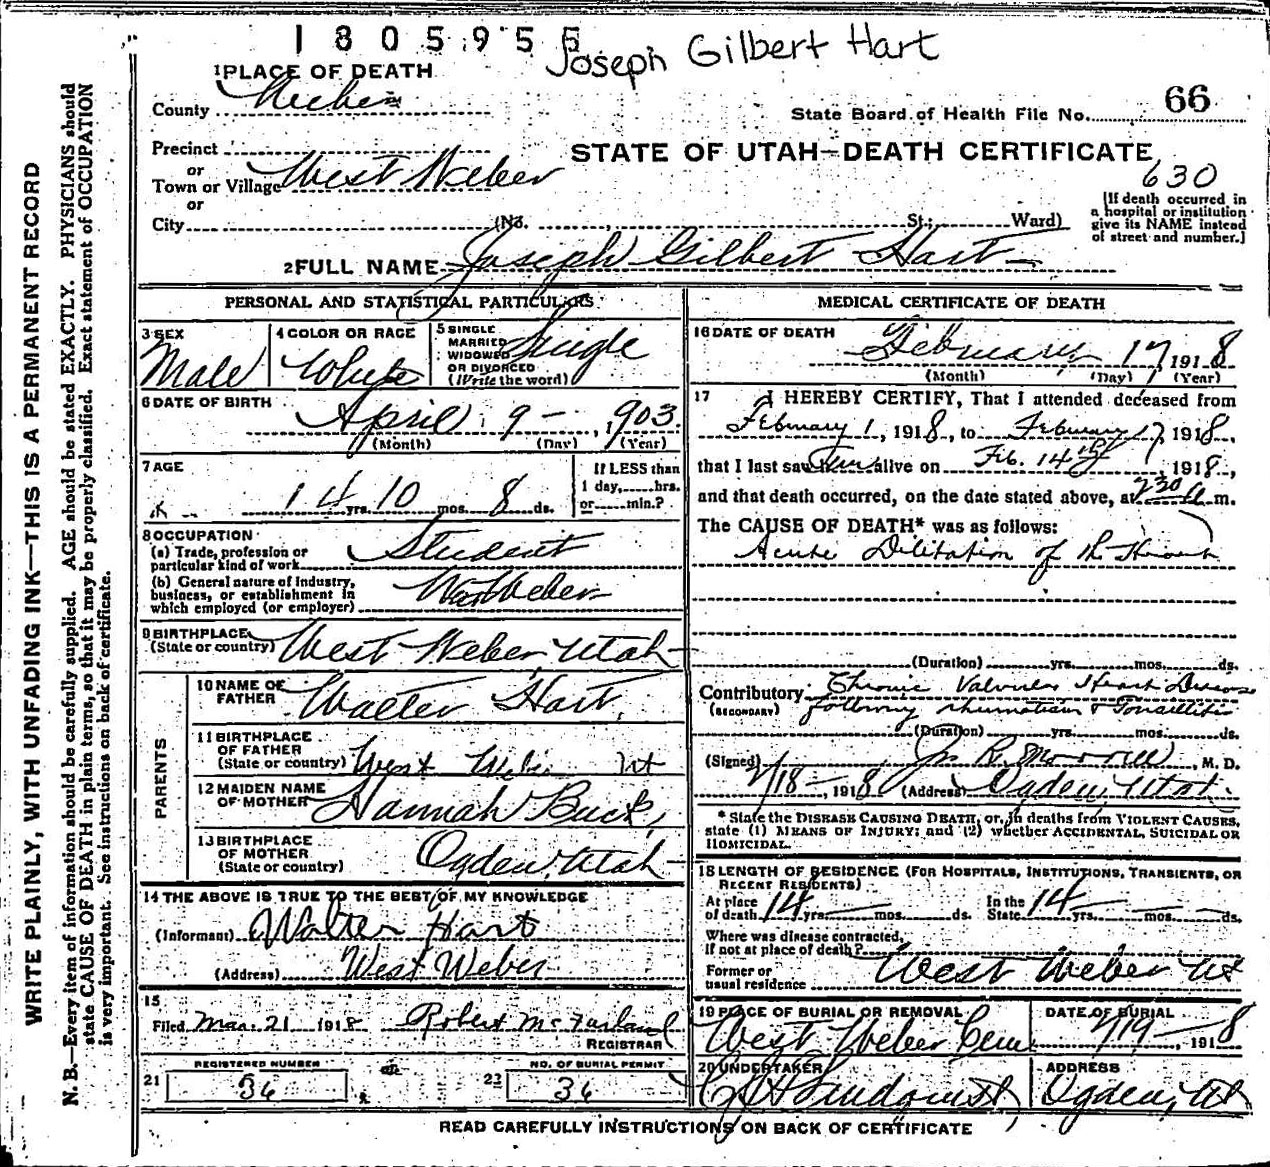 1805955
Joseph Gilbert Hart
1 PLACE OF DEATH
County Weber
State Board of Health File No. 66
Precinct
or
Town or Village West Weber
or
STATE OF UTAH—DEATH CERTIFICATE
630
City (No. St.; Ward)
[If death occurred in
a hospital or institution
give its NAME instead
of street and number.]
2 FULL NAME Joseph Gilbert Hart
PERSONAL AND STATISTICAL PARTICULARS
3 SEX
Male
4 COLOR OR RACE
White
5 SINGLE
MARRIED
WIDOWED
OR DIVORCED
(Write the word)
Single
6 DATE OF BIRTH
April 9 , 1903
(Month) (Day) (Year)
7 AGE
14 yrs. 10 mos. 8 ds.
If LESS than
1 day, hrs.
or min.?
8 OCCUPATION
(a) Trade, profession or
particular kind of work Student
(b) General nature of industry,
business, or establishment in
which employed (or employer) West Weber
9 BIRTHPLACE
(State or country) West Weber, Utah
PARENTS
10 NAME OF
FATHER Walter Hart
11 BIRTHPLACE
OF FATHER
(State or country) West Weber Ut
12 MAIDEN NAME
OF MOTHER Hannah Buck
13 BIRTHPLACE
OF MOTHER
(State or country) Ogden, Utah
14 THE ABOVE IS TRUE TO THE BEST OF MY KNOWLEDGE
(Informant) Walter Hart
(Address) West Weber
15
Filed Mar. 21 1918 Robert McFarland
REGISTRAR
REGISTERED NUMBER
21 36
NO. OF BURIAL PERMIT
22 36
MEDICAL CERTIFICATE OF DEATH
16 DATE OF DEATH
February 17, 1918
(Month) (Day) (Year)
17 I HEREBY CERTIFY, That I attended deceased from
February 1, 1918, to February 17, 1918,
that I last saw him alive on Feb. 14th, 1918,
and that death occurred, on the date stated above, at 230 m.
The CAUSE OF DEATH* was as follows:
Acute Dilitation of the Heart
(Duration) yrs. mos. ds.
Contributory Chronic Valvular Heart Disease
(SECONDARY) following rhumatism & Tonsillitis
(Duration) yrs. mos. ds.
(Signed) Jn R. Morrell, M. D.
2/18, 1918 (Address) Ogden, Utah.
* State the DISEASE CAUSING DEATH, or, in deaths from VIOLENT CAUSES,
state (1) MEANS OF INJURY; and (2) whether ACCIDENTAL, SUICIDAL OR
HOMICIDAL.
18 LENGTH OF RESIDENCE (FOR HOSPITALS, INSTITUTIONS, TRANSIENTS, OR
RECENT RESIDENTS)
At place
of death 14 yrs. mos. ds.
In the
State 14 yrs. mos. ds.
Where was disease contracted,
if not at place of death?
Former or
usual residence West Weber Ut
19 PLACE OF BURIAL OR REMOVAL
West Weber Cem
DATE OF BURIAL
2/19, 1918
20 UNDERTAKER
Lindquist
ADDRESS
Ogden, Ut
READ CAREFULLY INSTRUCTIONS ON BACK OF CERTIFICATE
WRITE PLAINLY, WITH UNFADING INK—THIS IS A PERMANENT RECORD
N. B.—Every item of information should be carefully supplied. AGE should be stated EXACTLY. PHYSICIANS should
state CAUSE OF DEATH in plain terms, so that it may be properly classified. Exact statement of OCCUPATION
is very important. See instructions on back of certificate.